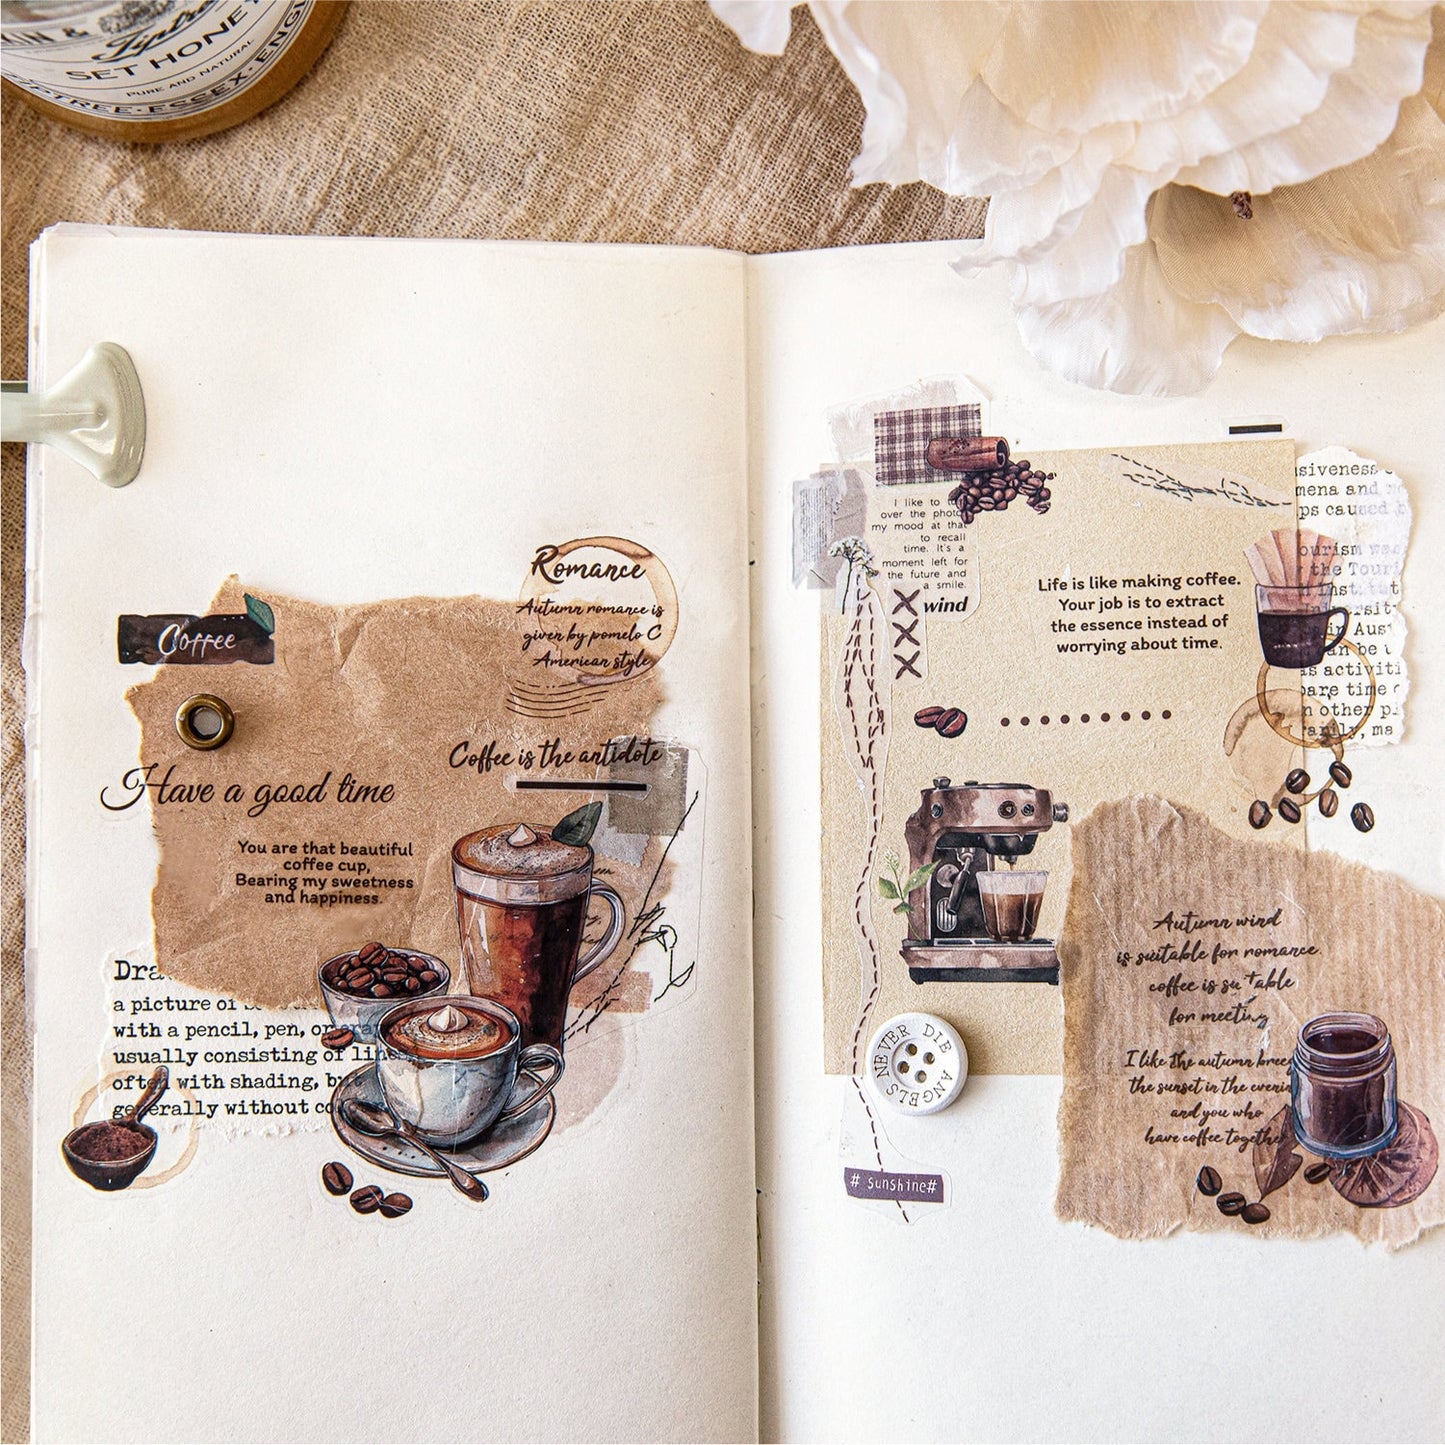 SET HONEY
PURE AND NATURAL
TIPTREE · ESSEX · ENGL
Coffee
Romance
Autumn romance is
given by pomelo C
American style
Coffee is the antidote
Have a good time
You are that beautiful
coffee cup,
Bearing my sweetness
and happiness.
Dra
a picture of
with a pencil, pen, or
usually consisting of line
often with shading, but
generally without co
I like to
over the photo
my mood at that
to recall
time. It's a
moment left for
the future and
a smile.
wind
XXX
Life is like making coffee.
Your job is to extract
the essence instead of
worrying about time.
siveness
mena and
ps caused b
ourism
the Touri
Aus
an be
as activiti
pare time
n other pl
rarily, ma
Autumn wind
is suitable for romance.
coffee is suitable
for meeting
I like the autumn bree
the sunset in the evenin
and you who
have coffee together
NEVER DIE ANGELS
# sunshine#